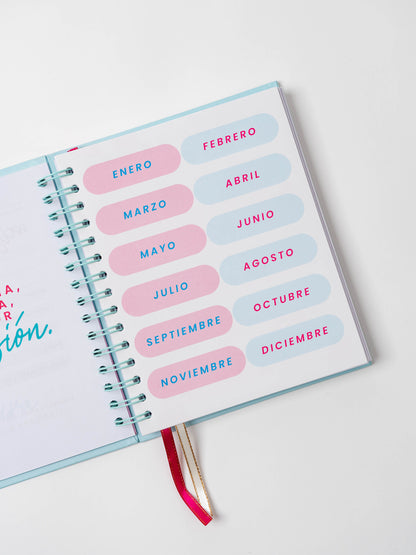 A,
A,
R
sión.
ENERO
FEBRERO
MARZO
ABRIL
MAYO
JUNIO
JULIO
AGOSTO
SEPTIEMBRE
OCTUBRE
NOVIEMBRE
DICIEMBRE